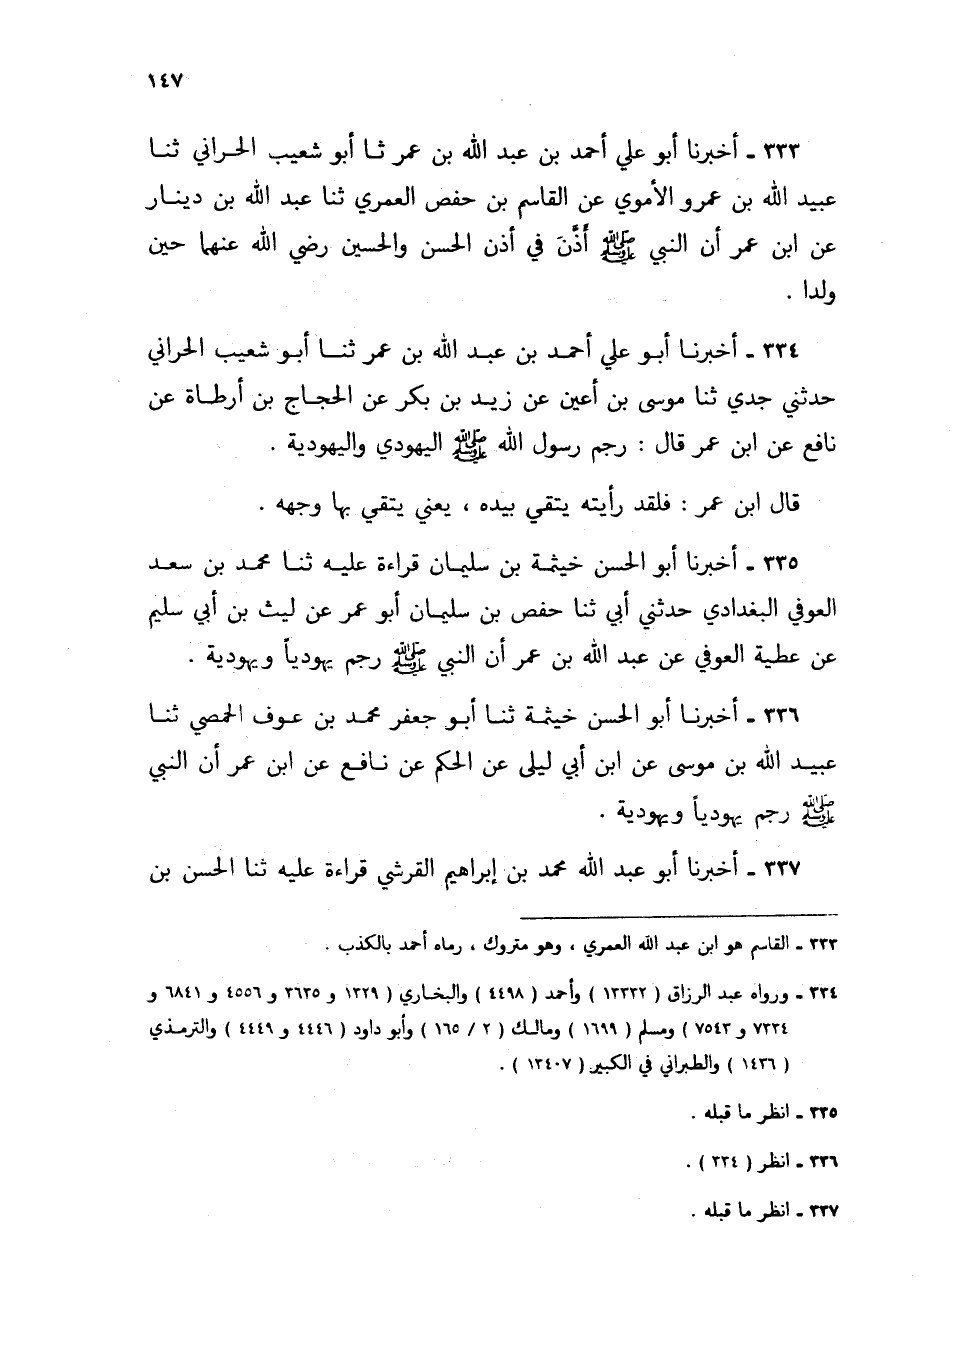 ١٤٧
٣٣٣ ـ أخبرنا أبو علي أحمد بن عبد الله بن عمر ثـا أبو شعيب الحـراني ثنـا
عبيد الله بن عمرو الأموي عن القاسم بن حفص العمري ثنا عبد الله بن دينـار
عن ابن عمر أن النبي ﷺ أَذَّنَ في أذن الحسن والحسين رضي الله عنهما حين
ولدا .
٣٣٤ ـ أخبرنـا أبـو علي أحمـد بن عبـد الله بن عمر ثنــا أبـو شعيب الحراني
حدثني جدي ثنا موسى بن أعين عن زيـد بن بكر عن الحجـاج بن أرطـاة عن
نافع عن ابن عمر قال : رجم رسول الله ﷺ اليهودي واليهودية .
قال ابن عمر : فلقد رأيته يتقي بيده ، يعني يتقي بها وجهه .
٣٣٥ ـ أخبرنا أبو الحسن خيثمـة بن سليمـان قراءة عليـه ثنـا محمـد بن سعـد
العوفي البغدادي حدثني أبي ثنا حفص بن سليمـان أبو عمر عن ليث بن أبي سليم
عن عطية العوفي عن عبد الله بن عمر أن النبي ﷺ رجم يهودياً ويهودية .
٣٣٦ ـ أخبرنـا أبو الحسن خيثمـة ثنـا أبـو جعفر محمـد بن عـوف الحمصي ثنـا
عبيـد الله بن موسى عن ابن أبي ليلى عن الحكم عن نـافـع عن ابن عمر أن النبي
ﷺ رجم يهودياً ويهودية .
٣٣٧ ـ أخبرنا أبو عبد الله محمد بن إبراهيم القرشي قراءة عليه ثنا الحسن بن
٣٣٣ ـ القاسم هو ابن عبد الله العمري ، وهو متروك ، رماه أحمد بالكذب .
٣٣٤ ـ ورواه عبد الرزاق ( ١٣٣٣٢ ) وأحمد ( ٤٤٩٨ ) والبخـاري ( ١٣٢٩ و ٣٦٣٥ و ٤٥٥٦ و ٦٨٤١ و
٧٣٣٤ و ٧٥٤٣ ) ومسلم ( ١٦٩٩ ) ومالـك ( ٢ / ١٦٥ ) وأبو داود ( ٤٤٤٦ و ٤٤٤٩ ) والترمـذي
( ١٤٣٦ ) والطبراني في الكبير ( ١٣٤٠٧ ) .
٣٣٥ ـ انظر ما قبله .
٣٣٦ ـ انظر ( ٣٣٤ ) .
٣٣٧ ـ انظر ما قبله .